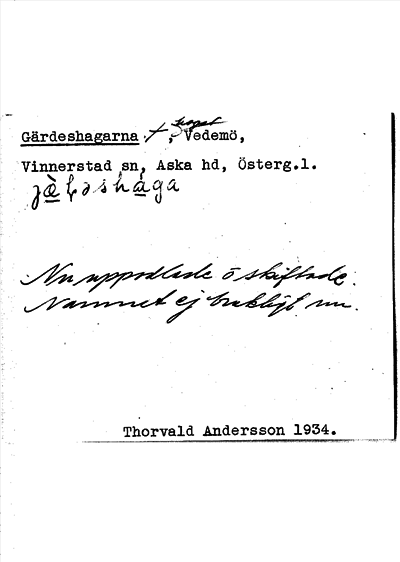 Gärdeshagarna +, Vedemö,
Vinnerstad sn, Aska hd, Österg.l.
Nu uppodlade o skiftade.
Namnet ej brukligt nu.
Thorvald Andersson 1934.